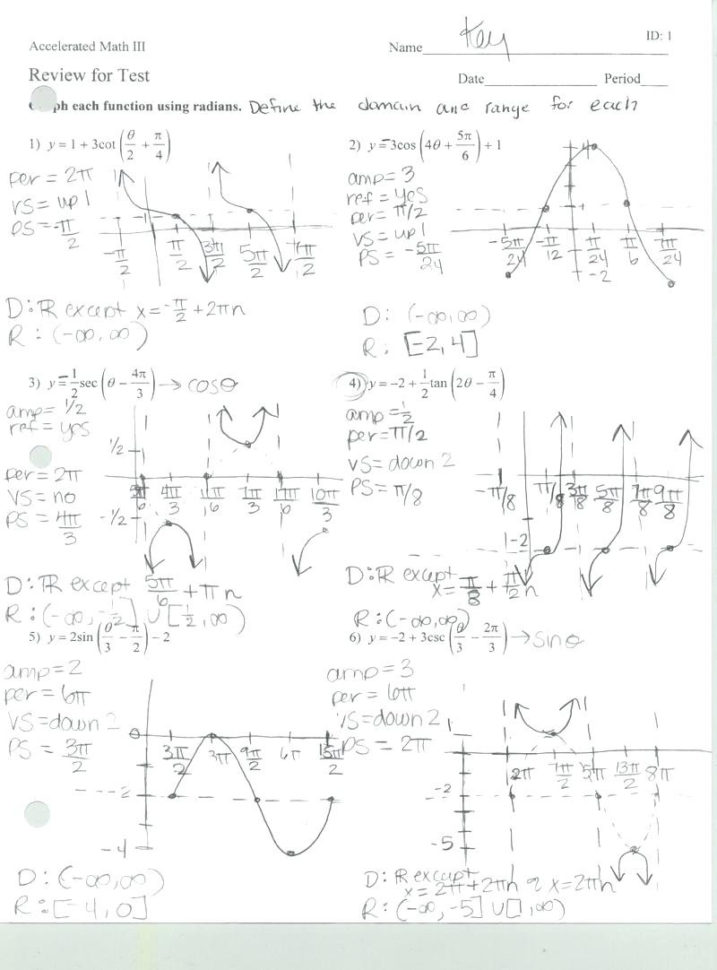 Key ID: 1
Accelerated Math III Name
Review for Test Date Period
ph each function using radians. Define the domain and range for each
1) y = 1 + 3cot (θ/2 + π/4)
per = 2π
VS = up 1
PS = -π/2
-π/2 π/2 3π/2 5π/2 7π/2
D: ℝ except x = -π/2 + 2πn
R: (-∞, ∞)
2) y = -3cos (4θ + 5π/6) + 1
amp = 3
ref = yes
per = π/2
VS = up 1
PS = -5π/24
4
-5π/24 -π/12 π/24 π/6 7π/24
-2
D: (-∞, ∞)
R: [-2, 4]
3) y = -1/2 sec (θ - 4π/3) → cosθ
amp = 1/2
ref = yes
per = 2π
VS = no
PS = 4π/3
1/2
4π/3 11π/6 7π/3 17π/6 10π/3
-1/2
D: ℝ except 5π/6 + πn
R: (-∞, -1/2] ∪ [1/2, ∞)
4) y = -2 + 1/2 tan (2θ - π/4)
amp = 1/2
per = π/2
VS = down 2
PS = π/8
-π/8 π/8 3π/8 5π/8 7π/8 9π/8
-2
D: ℝ except x = π/8 + π/2 n
R: (-∞, ∞)
5) y = 2sin (θ/3 - π/2) - 2
amp = 2
per = 6π
VS = down 2
PS = 3π/2
0
3π/2 3π 9π/2 6π 15π/2
-2
-4
D: (-∞, ∞)
R: [-4, 0]
6) y = -2 + 3csc (θ/3 - 2π/3) → sinθ
amp = 3
per = 6π
VS = down 2
PS = 2π
1
2π 7π/2 5π 13π/2 8π
-2
-5
D: ℝ except
x = 2π + 2πn & x = 2πn
R: (-∞, -5] ∪ [ , ∞)